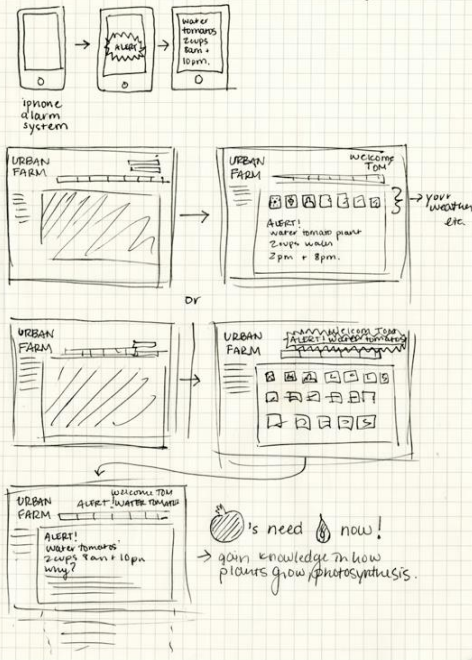 ALERT!
water
tomatos
2 cups
8am +
10pm.
iphone
alarm
system
URBAN
FARM
URBAN
FARM
welcome
TOM
ALERT!
water tomato plant
2 cups water
2pm + 8pm.
your
weather
etc.
or
URBAN
FARM
URBAN
FARM
Welcom TOM
ALERT! Water tomatos
URBAN
FARM
welcome TOM
ALERT! WATER TOMATO
ALERT!
water tomatos
2 cups 8am + 10pm
why?
's need now!
gain knowledge in how
plants grow, photosynthesis.